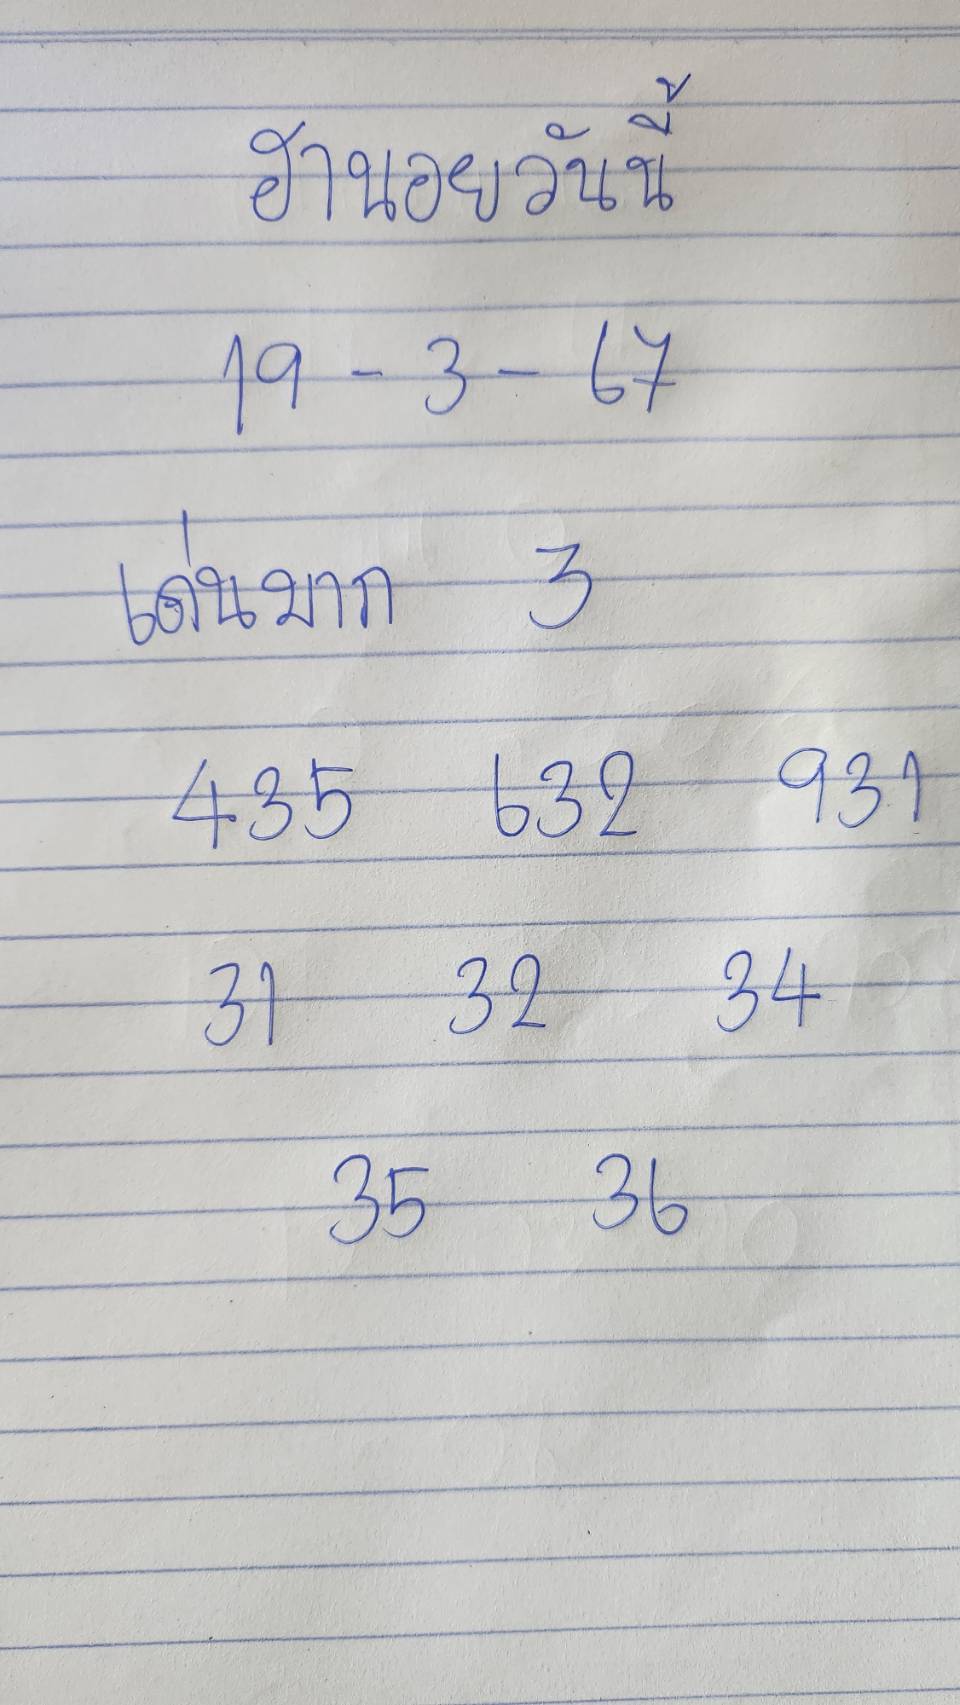 ฮานอยวันนี้
19 - 3 - 67
เด่นมาก 3
435 632 931
31 32 34
35 36